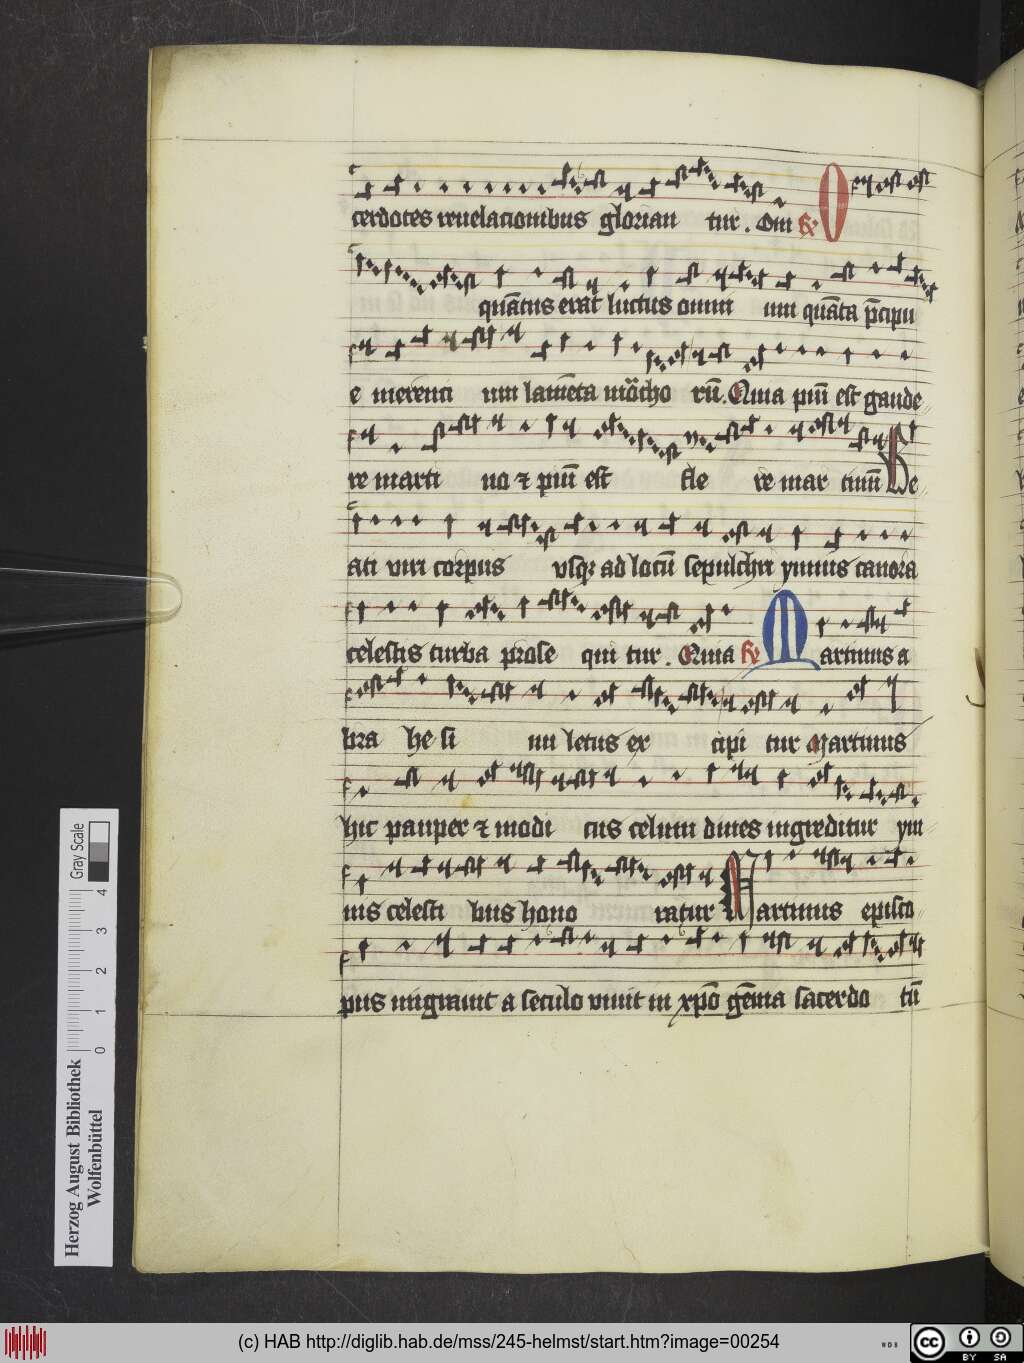 cerdotes reuelacionibus glorian tur. Om̄ R O
quātus erat luctus omni um quāta p̄cipu
e merenti um lamēta mōcho rū. Quia piū est gaude
re marti no ⁊ piū est fle re mar tinū Be
ati viri corpus vsqꝫ ad locū sepulchri ymnis canora
celestis turba prose qui tur. Quia R Martinus a
bra he si nu letus ex cipi tur Martinus
hic pauper ⁊ modi cus celum diues ingreditur ym
nis celesti bus hono ratur Martinus episco
pus migrauit a seculo viuit in xp̄o gēma sacerdo tū
Gray Scale
0 1 2 3 4
Herzog August Bibliothek
Wolfenbüttel
(c) HAB http://diglib.hab.de/mss/245-helmst/start.htm?image=00254
WDB
cc BY SA